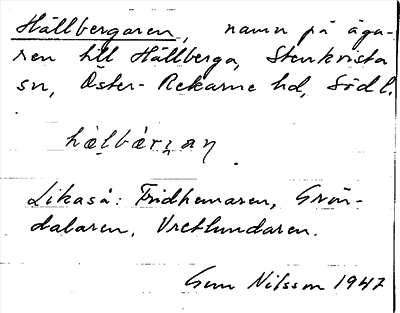 Hällbergaren, namn på äga-
ren till Hällberga, Stenkvista
sn, Öster-Rekarne hd, Södl.
hälbärjan
Likaså: Fridhemaren, Grön-
dalaren, Vretlundaren.
Gun Nilsson 1947